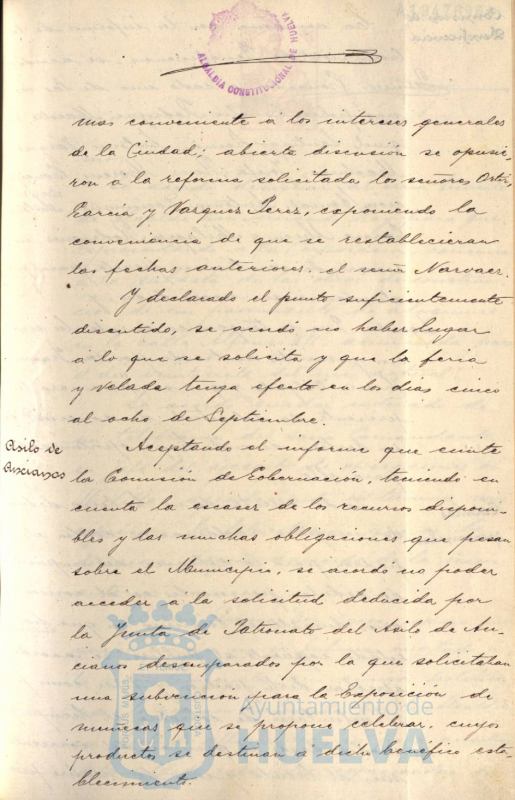 ALCALDÍA CONSTITUCIONAL DE HUELVA
mas conveniente á los intereses generales
de la Ciudad; abierta discusión se opusie-
ron á la reforma solicitada los señores Ortiz,
García y Vazquez Perez, exponiendo la
conveniencia de que se restablecieran
las fechas anteriores, el señor Narvaez.
Y declarado el punto suficientemente
discutido, se acordó no haber lugar
á lo que se solicita y que la feria
y velada tenga efecto en los dias cinco
al ocho de Septiembre.
Asilo de
Ancianos
Aceptando el informe que emite
la Comisión de Gobernación, teniendo en
cuenta la escasez de los recursos disponi-
bles y las muchas obligaciones que pesan
sobre el Municipio, se acordó no poder
acceder a la solicitud deducida por
la Junta de Patronato del Asilo de An-
cianos desamparados por la que solicitaban
una subvención para la Exposición de
muñecas que se propone celebrar, cuyos
productos se destinan á dicho benéfico esta-
blecimiento.
Ayuntamiento de
HUELVA